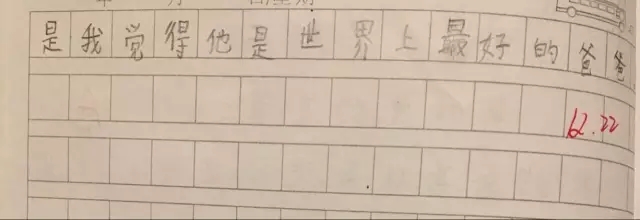 是我觉得他是世界上最好的爸爸
62.22